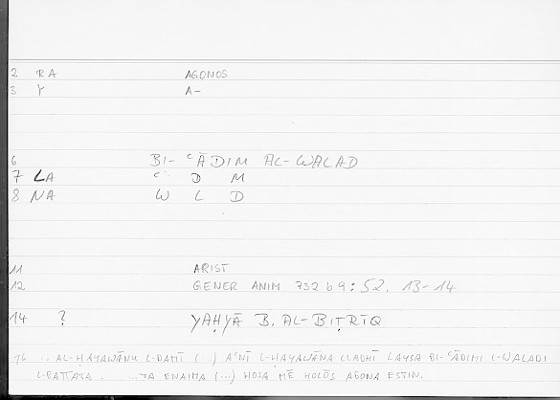 2 RA AGONOS
3 Y A-
6 BI- ʿĀDIM AL-WALAD
7 LA ʿ D M
8 NA W L D
11 ARIST
12 GENER ANIM 732 b 9 : 52. 13-14
14 ? YAḤYĀ B. AL-BIṬRĪQ
16 .. AL-ḤAYAWĀNU L-DAMĪ (..) AʿNĪ L-ḤAYAWĀNA LLADHĪ LAYSA BI-ʿĀDIMI L-WALADI
L-BATTATA. ...TA ENAIMA (...) HOSA MĒ HOLŌS AGONA ESTIN.